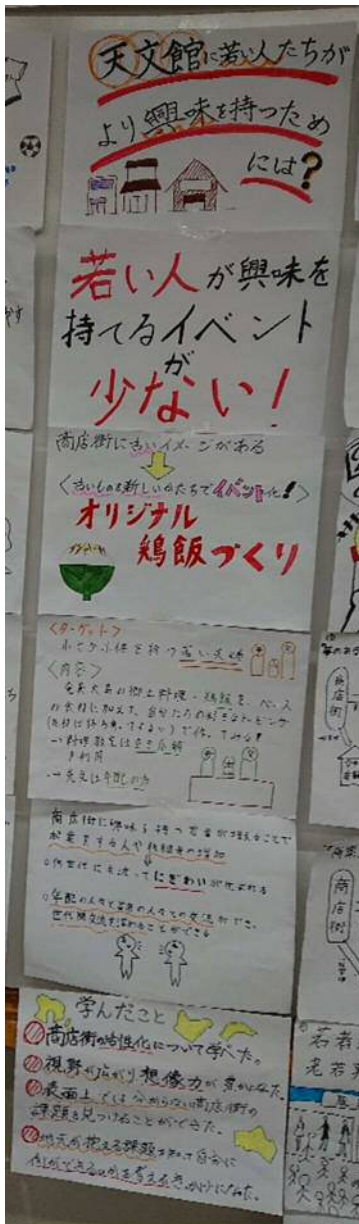 天文館に若い人たちが
より興味を持つため
には?
若い人が興味を
持てるイベント
が
少ない!
商店街に古いイメージがある
<古いものを新しいかたちでイベント化!>
オリジナル
鶏飯づくり
<ターゲット>
小さな子供を持つ若い夫婦
<内容>
奄美大島の郷土料理・鶏飯を、ベース
の食材に加えて、自分たちの好きなトッピング
(食材は持ち寄ってもよい)で作ってみる!
→料理教室は空き店舗
を利用
→先生は年配の方
商店街に興味を持つ若者が増えることで
起業をする人や後継者の増加
○何世代にも渡ってにぎわいが生まれる
○年配の人々と若者の人々との交流ができ、
世代間交流を深めることができる
学んだこと
商店街の活性化について学べた。
視野が広がり想像力が豊かなった。
表面上では分からない商店街の
課題を見つけることができた。
地元が抱える課題を知って自分に
何ができるのかを考えるきっかけになった。
商店街
商店街
若者
老若